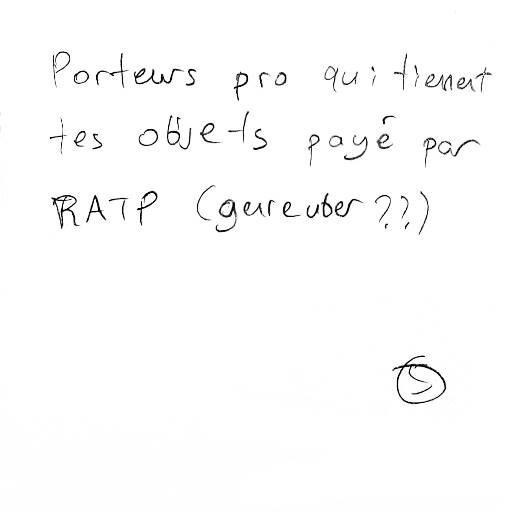 Porteurs pro qui tienent
tes objets payé par
RATP (genre uber ??)
5